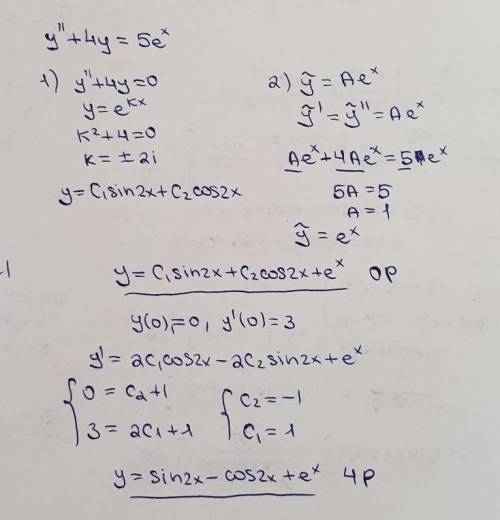 y'' + 4y = 5eˣ
1) y'' + 4y = 0
y = eᵏˣ
k² + 4 = 0
k = ± 2i
y = C₁sin2x + C₂cos2x
2) ỹ = Aeˣ
ỹ' = ỹ'' = Aeˣ
Aeˣ + 4Aeˣ = 5eˣ
5A = 5
A = 1
ỹ = eˣ
y = C₁sin2x + C₂cos2x + eˣ ОР
y(0) = 0, y'(0) = 3
y' = 2C₁cos2x - 2C₂sin2x + eˣ
0 = C₂ + 1
3 = 2C₁ + 1
C₂ = -1
C₁ = 1
y = sin2x - cos2x + eˣ ЧР